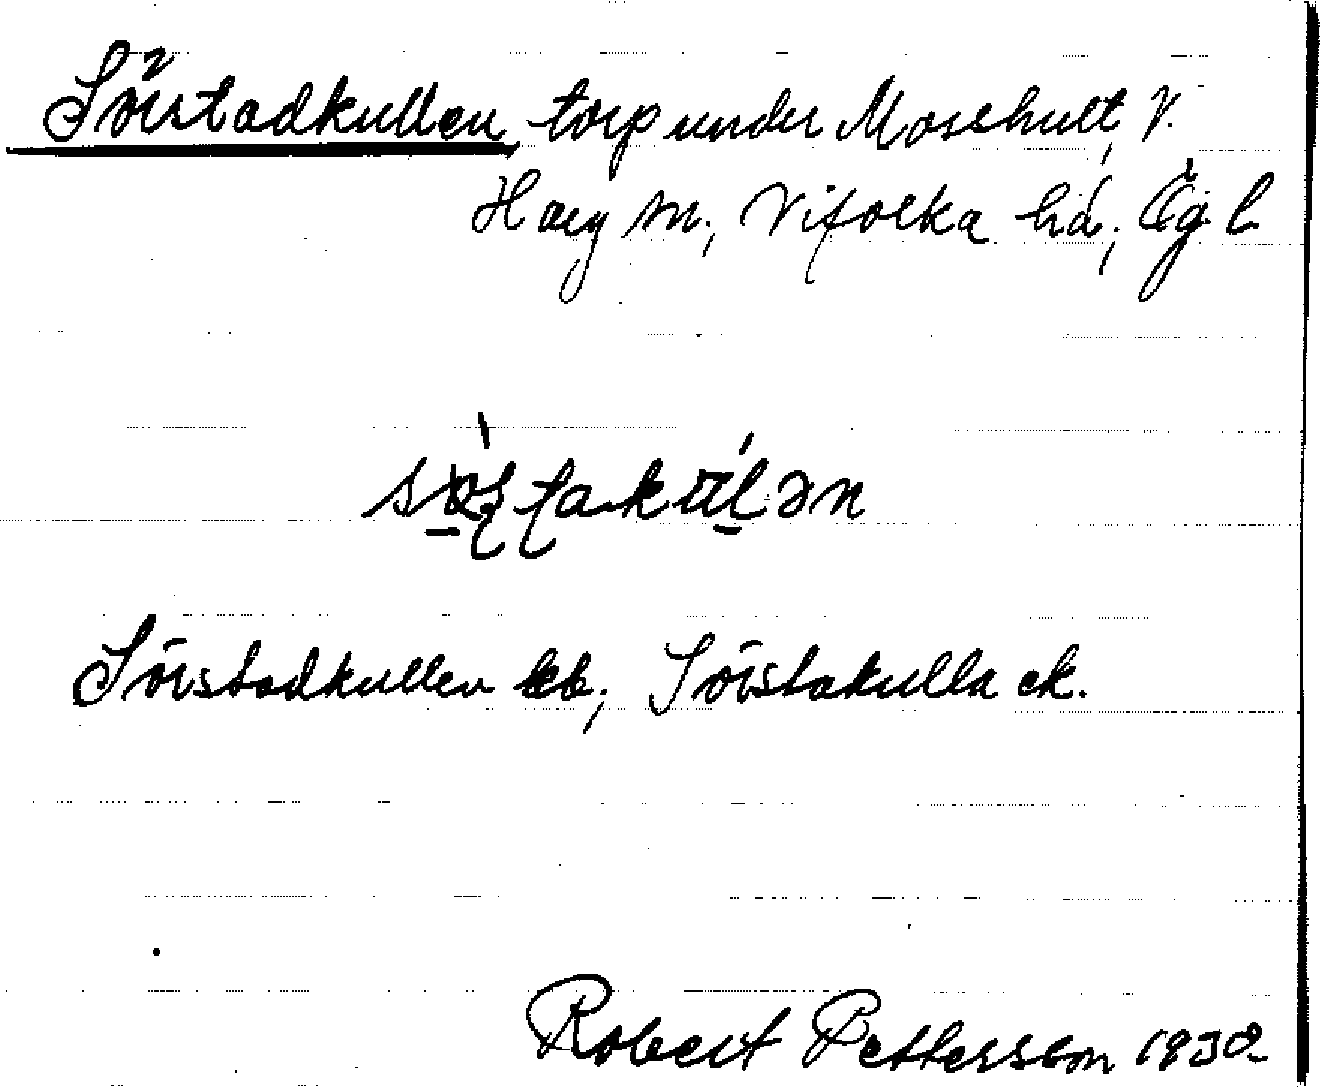 Sörstadkullen, torp under Mosshult, V.
Harg sn; Vifolka hd; Ög l
Sörstadkullen kb; Sörstakulla ek.
Robert Pettersson 1930